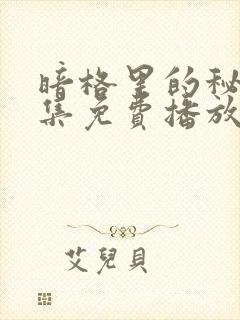 暗格里的秘
集免費播放
艾兒貝